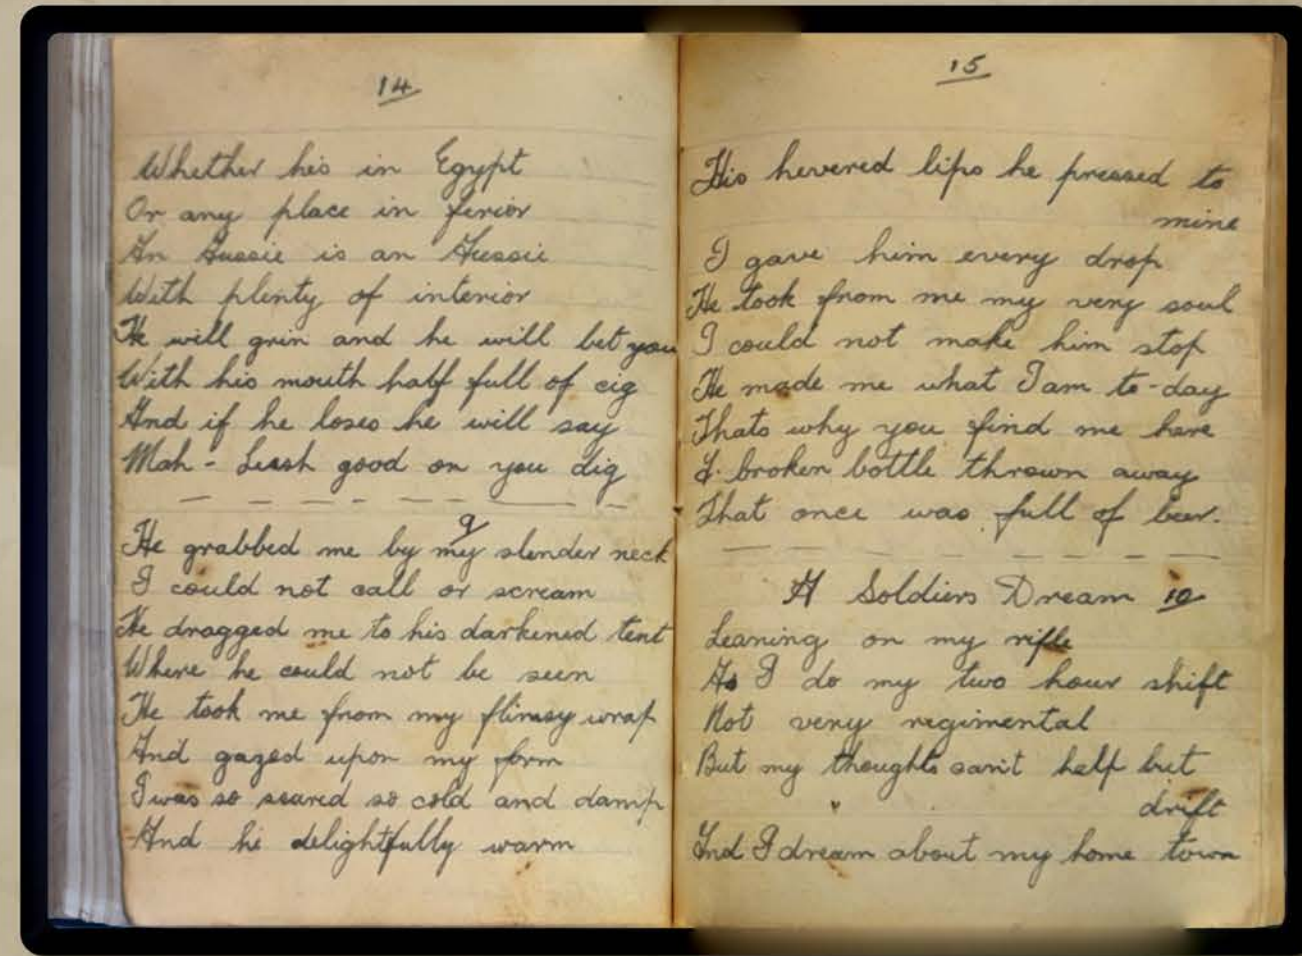 14
Whether his in Egypt
Or any place in ferior
An Aussie is an Aussie
With plenty of interior
He will grin and he will bet you
With his mouth half full of cig
And if he loses he will say
Mah - Leesh good on you dig
9
He grabbed me by my slender neck
I could not call or scream
He dragged me to his darkened tent
Where he could not be seen
He took me from my flimsy wrap
And gazed upon my form
I was so scared so cold and damp
And he delightfully warm
15
His hevered lips he pressed to
mine
I gave him every drop
He took from me my very soul
I could not make him stop
He made me what I am to-day
Thats why you find me here
A broken bottle thrown away
That once was full of beer.
A Soldiers Dream 10
Leaning on my rifle
As I do my two hour shift
Not very regimental
But my thoughts can't help but
drift
And I dream about my home town